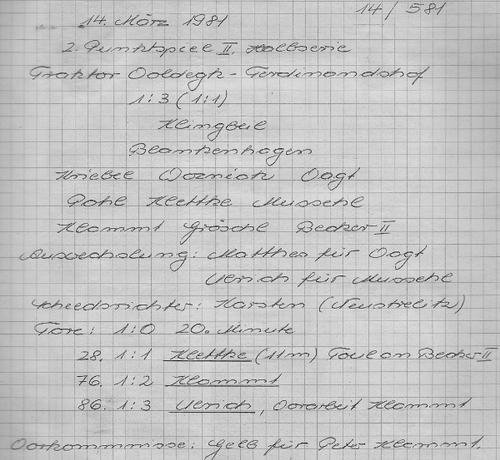 14 / 581
14. März 1981
2. Punktspiel II. Halbserie
Traktor Voldegk - Ferdinandshof
1:3 (1:1)
Klingbeil
Blankenhagen
Kriebel Wozniak Vogt
Pohl Klettke Mussehl
Klammt Grösche Becker II
Auswechslung: Matthes für Vogt
Ulrich für Mussehl
Schiedsrichter: Karsten (Neustrelitz)
Tore: 1:0 20. Minute
28. 1:1 Klettke (11m) Foul an Becker II
76. 1:2 Klammt
86. 1:3 Ulrich, Vorarbeit Klammt
Vorkommnisse: Gelb für Peter Klammt.